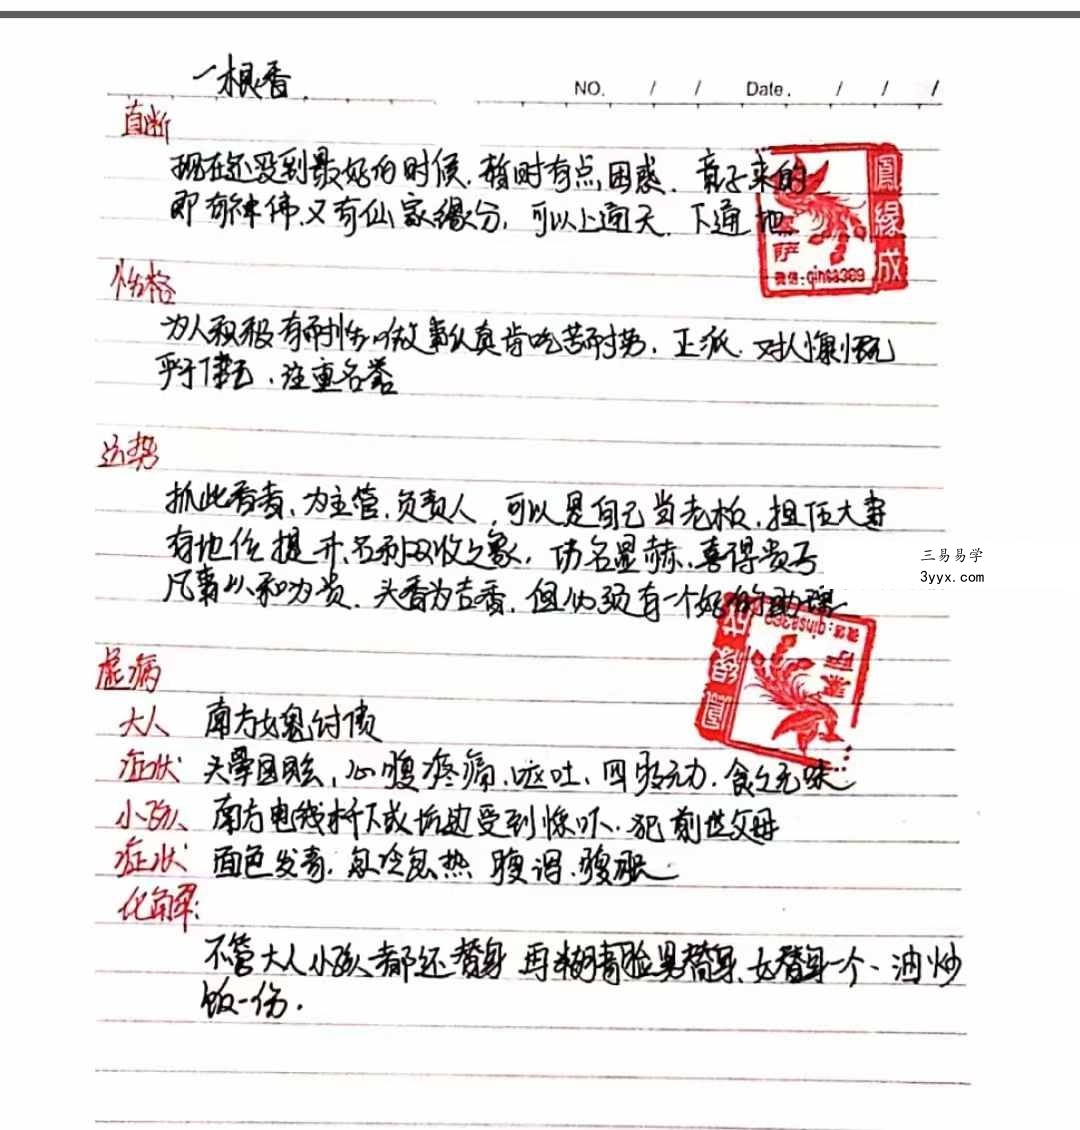 一根香
NO. / / Date. / / /
直断
现在还没到最好的时候.暂时有点困惑. 童子来的
即有律伟.又有仙家缘分, 可以上通天. 下通地
鳳緣成
萨
微信:qinsa369
性格
为人积极有耐性.做事认真肯吃苦耐劳. 正派. 对人慷慨
平于律己, 注重名誉
运势
抓此香者, 为主管, 负责人, 可以是自己当老板, 担任大事
有地位提升, 名利双收之象, 功名显赫, 喜得贵子
三易易学
3yyx.com
凡事以和为贵. 头香为吉香, 但必须有一个好的助理
虚病
大人 南方女鬼讨债
症状 头晕目眩, 心腹疼痛, 呕吐, 四肢无力. 食之无味
小孩 南方电线杆下或坑边受到惊吓. 犯前世父母
症状 面色发青, 忽冷忽热 腹泻, 腹胀
化解:
不管大人小孩都还替身 再糊青脸男替身, 女替身一个、油炒
饭一份.